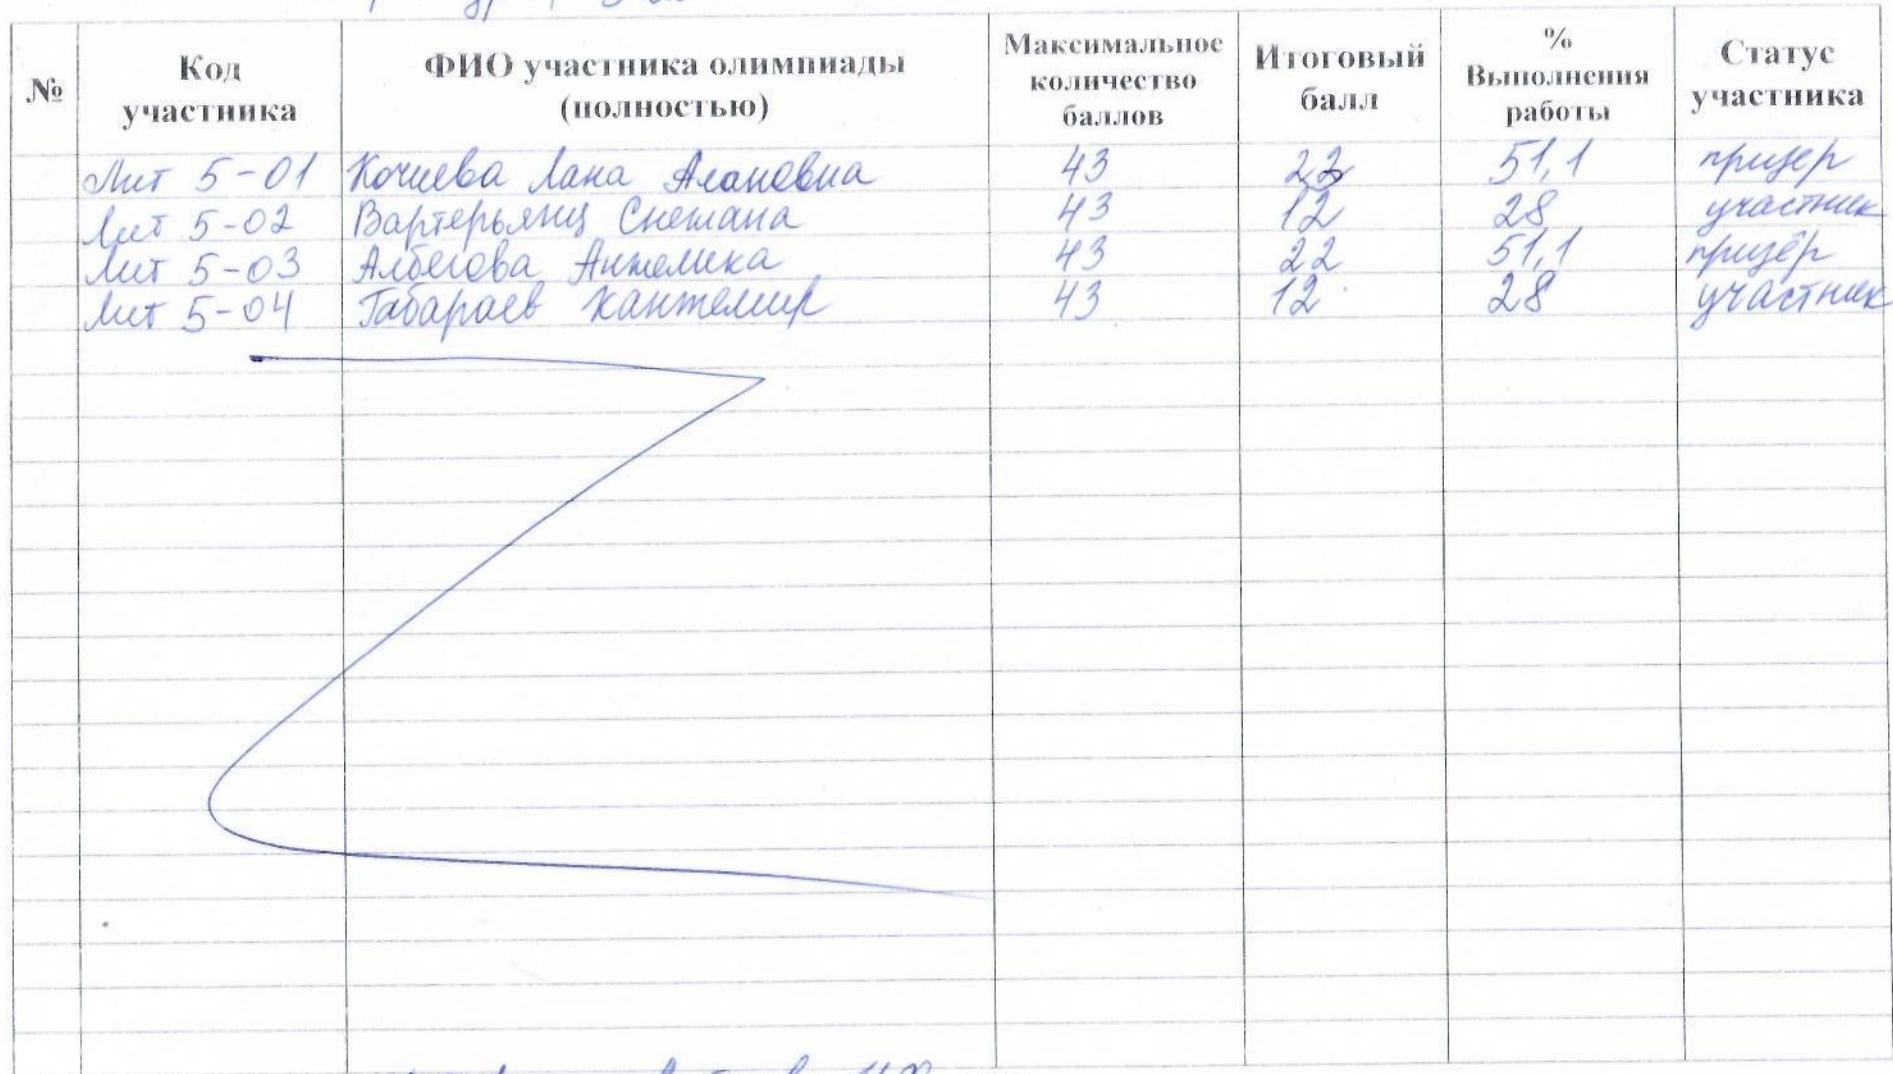 № Код участника ФИО участника олимпиады (полностью) Максимальное количество баллов Итоговый балл % Выполнения работы Статус участника
Лит 5-01 Кочиева Лана Алановна 43 22 51,1 призер
Лит 5-02 Вартерьянц Снежана 43 12 28 участник
Лит 5-03 Албегова Анжелика 43 22 51,1 призёр
Лит 5-04 Габараев Хантемир 43 12 28 участник